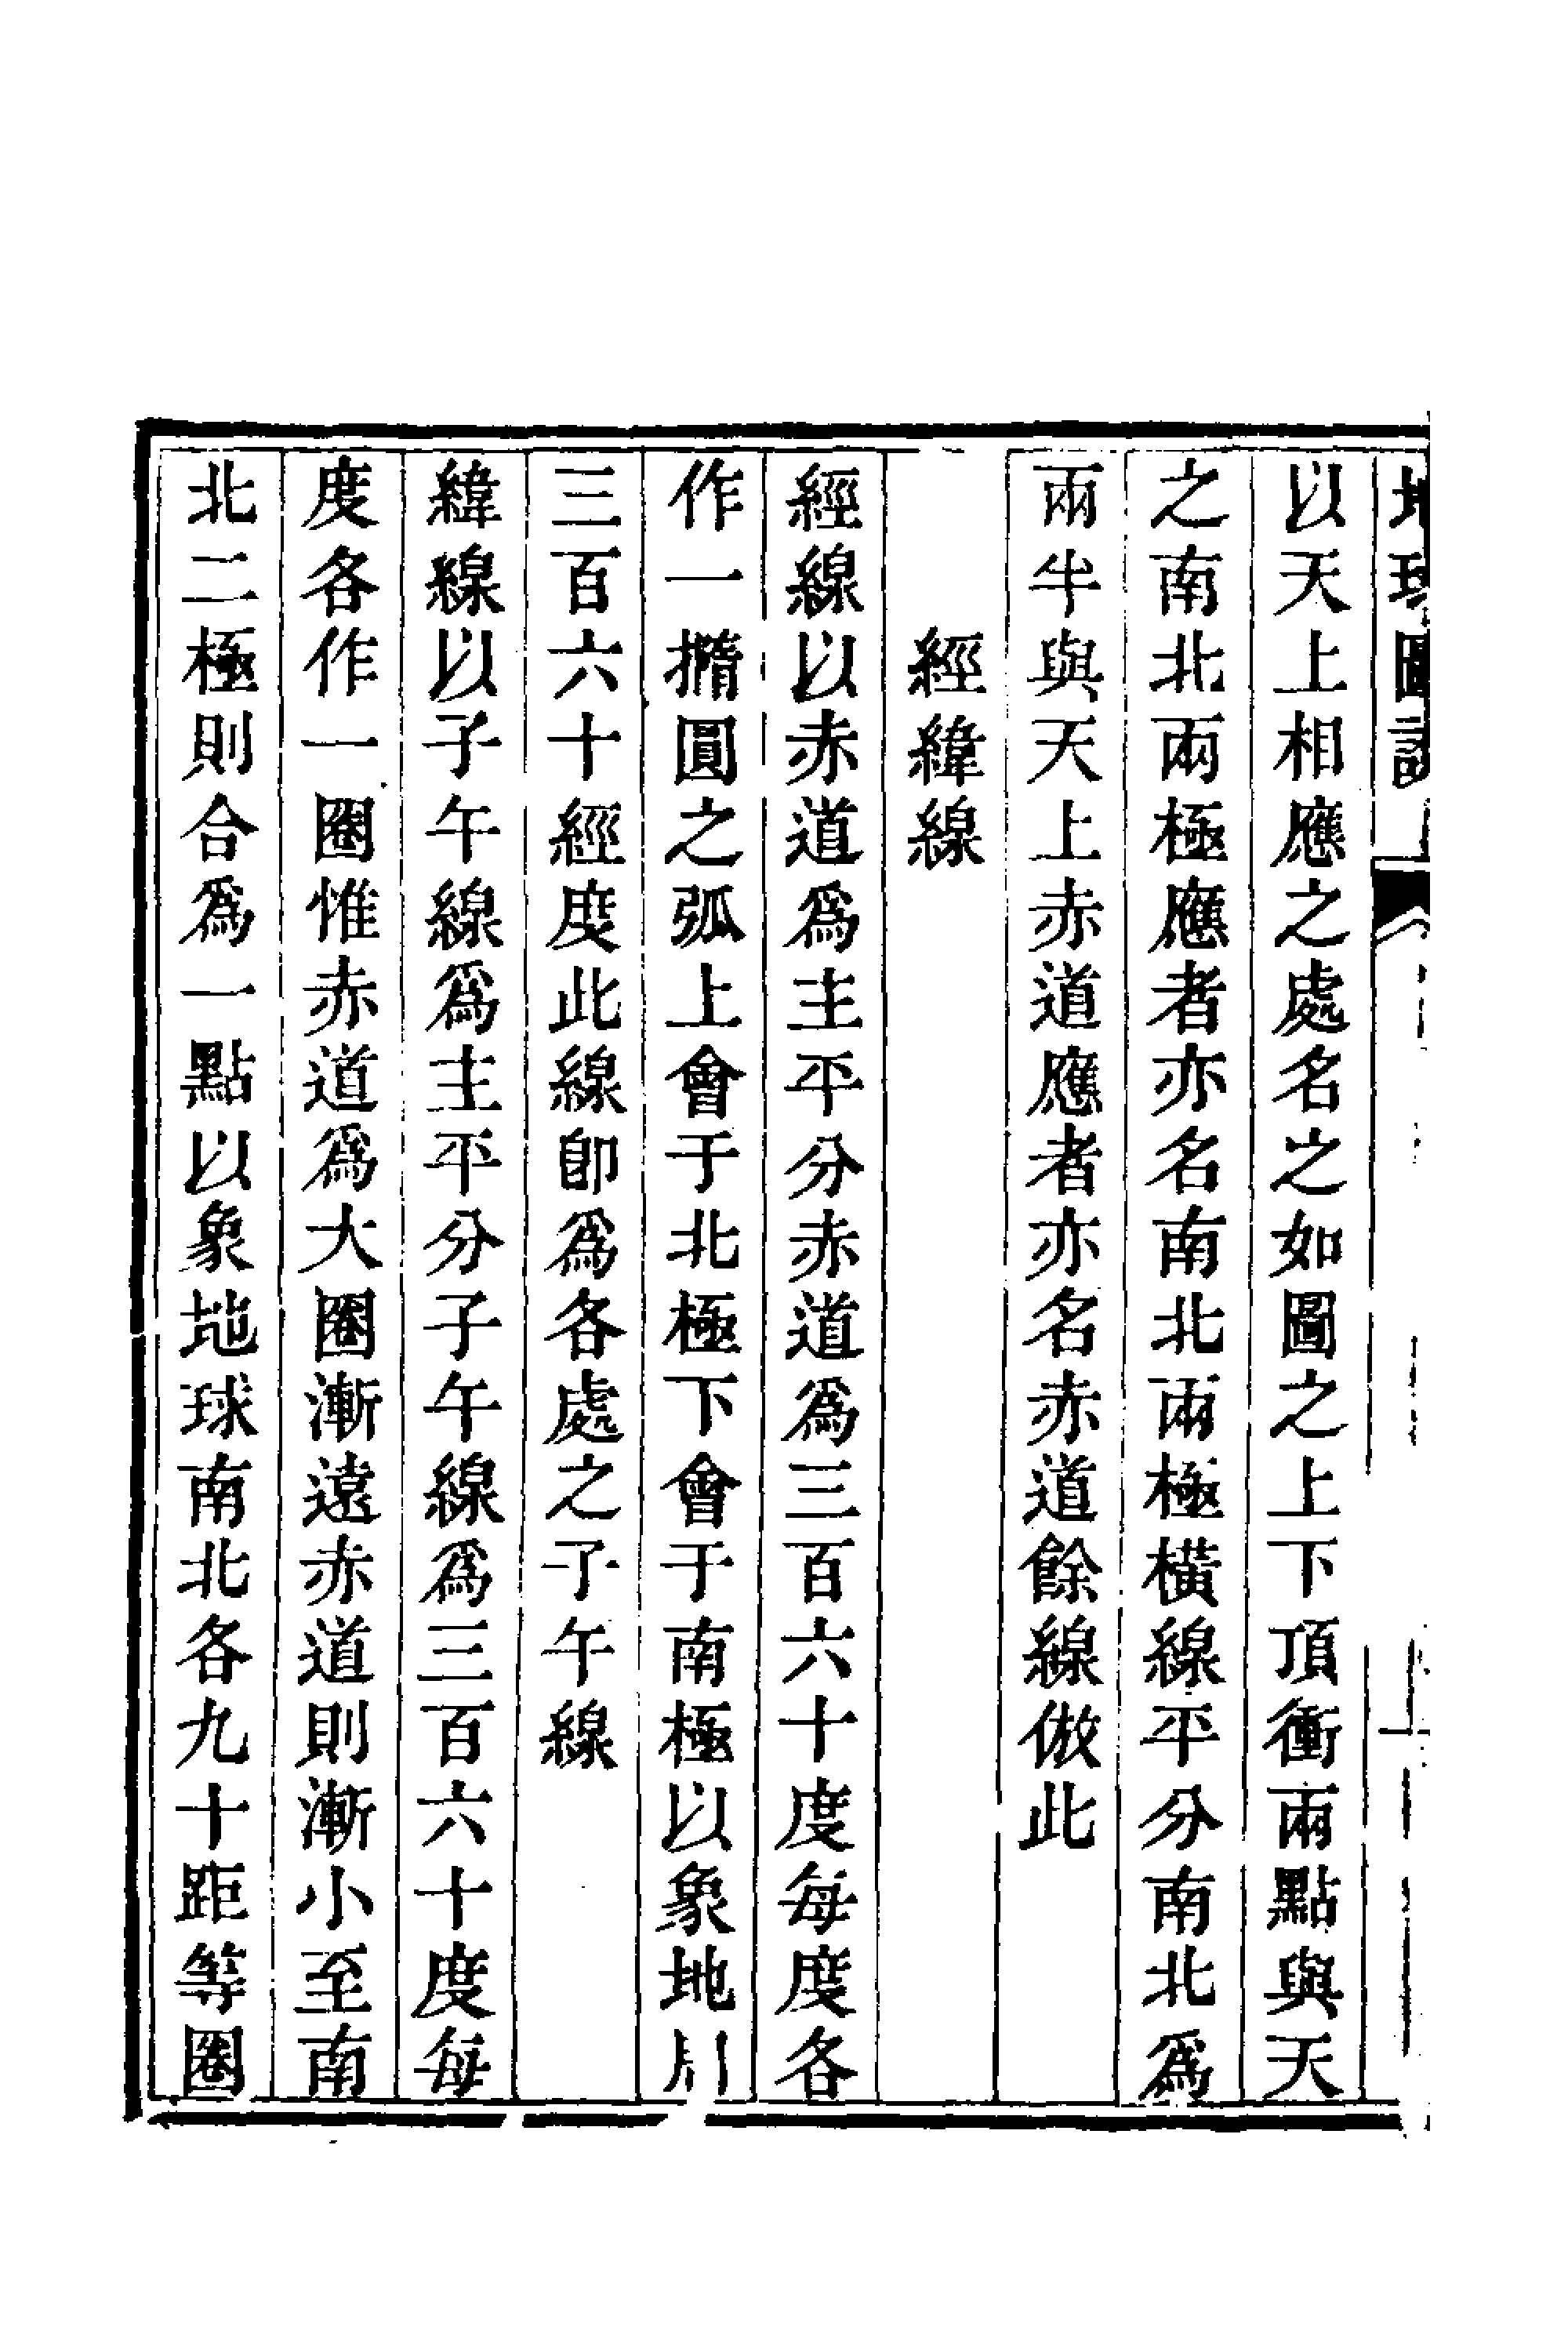 地球圖說
以天上相應之處名之如圖之上下頂衝兩點與天
之南北兩極應者亦名南北兩極橫線平分南北爲
兩半與天上赤道應者亦名赤道餘線倣此
經緯線
經線以赤道爲主平分赤道爲三百六十度每度各
作一撱圓之弧上會于北極下會于南極以象地周
三百六十經度此線卽爲各處之子午線
緯線以子午線爲主平分子午線爲三百六十度每
度各作一圈惟赤道爲大圈漸遠赤道則漸小至南
北二極則合爲一點以象地球南北各九十距等圈